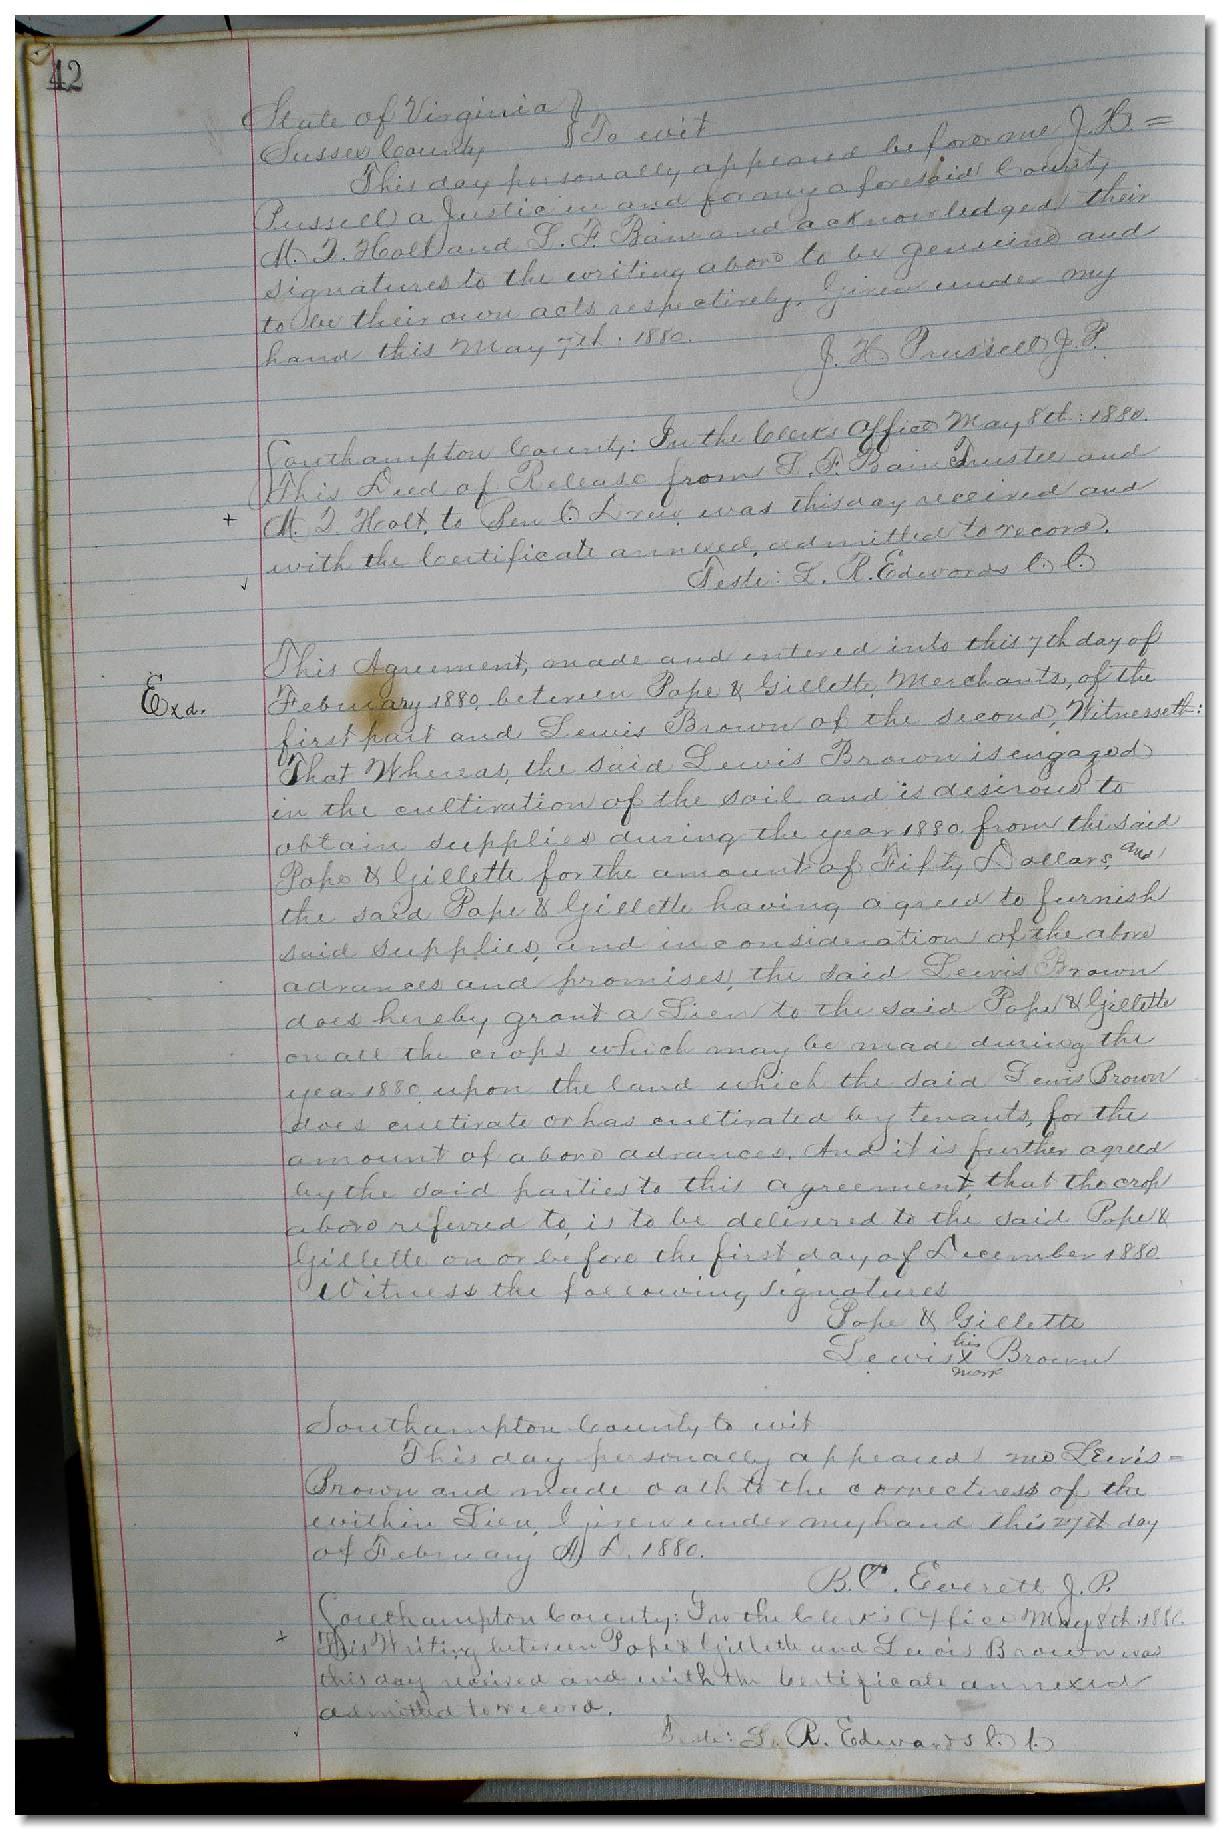 42
State of Virginia }
Sussex County } To wit
This day personally appeared before me J. H. =
Prussell a Justice in and for my aforesaid County
M. T. Holt and L. F. Bain and acknowledged their
signatures to the writing above to be genuine and
to be their own acts respectively. Given under my
hand this May 7th. 1880.
J. H. Prussell J. P.
Southampton County: In the Clerks Office May 8th: 1880.
This Deed of Release from L. F. Bain Trustee and
+ M. T. Holt, to Ben C. Drew, was this day received and
with the Certificate annexed, admitted to record.
Teste: L. R. Edwards C. C.
This Agreement, made and entered into this 7th day of
Exd. February 1880, between Pope & Gillette, Merchants, of the
first part and Lewis Brown of the second, Witnesseth:
That Whereas, the said Lewis Brown is engaged
in the cultivation of the soil and is desirous to
obtain supplies during the year 1880 from the said
Pope & Gillette for the amount of Fifty Dollars, and
the said Pope & Gillette having agreed to furnish
said supplies, and in consideration of the above
advances and promises, the said Lewis Brown
does hereby grant a Lien to the said Pope & Gillette
on all the crops which may be made during the
year 1880 upon the land which the said Lewis Brown
does cultivate or has cultivated by tenants, for the
amount of above advances. And it is further agreed
by the said parties to this agreement, that the crop
above referred to, is to be delivered to the said Pope &
Gillette on or before the first day of December 1880
Witness the following signatures
Pope & Gillette
Lewis his X mark Brown
Southampton County to wit
This day personally appeared me Lewis =
Brown and made oath to the correctness of the
within Lien, Given under my hand this 27th day
of February A. D. 1880.
B. C. Everett J. P.
Southampton County: In the Clerk's Office May 8th: 1880.
+ This Writing between Pope & Gillette and Lewis Brown was
this day received and with the Certificate annexed
admitted to record.
Teste: L. R. Edwards C. C.